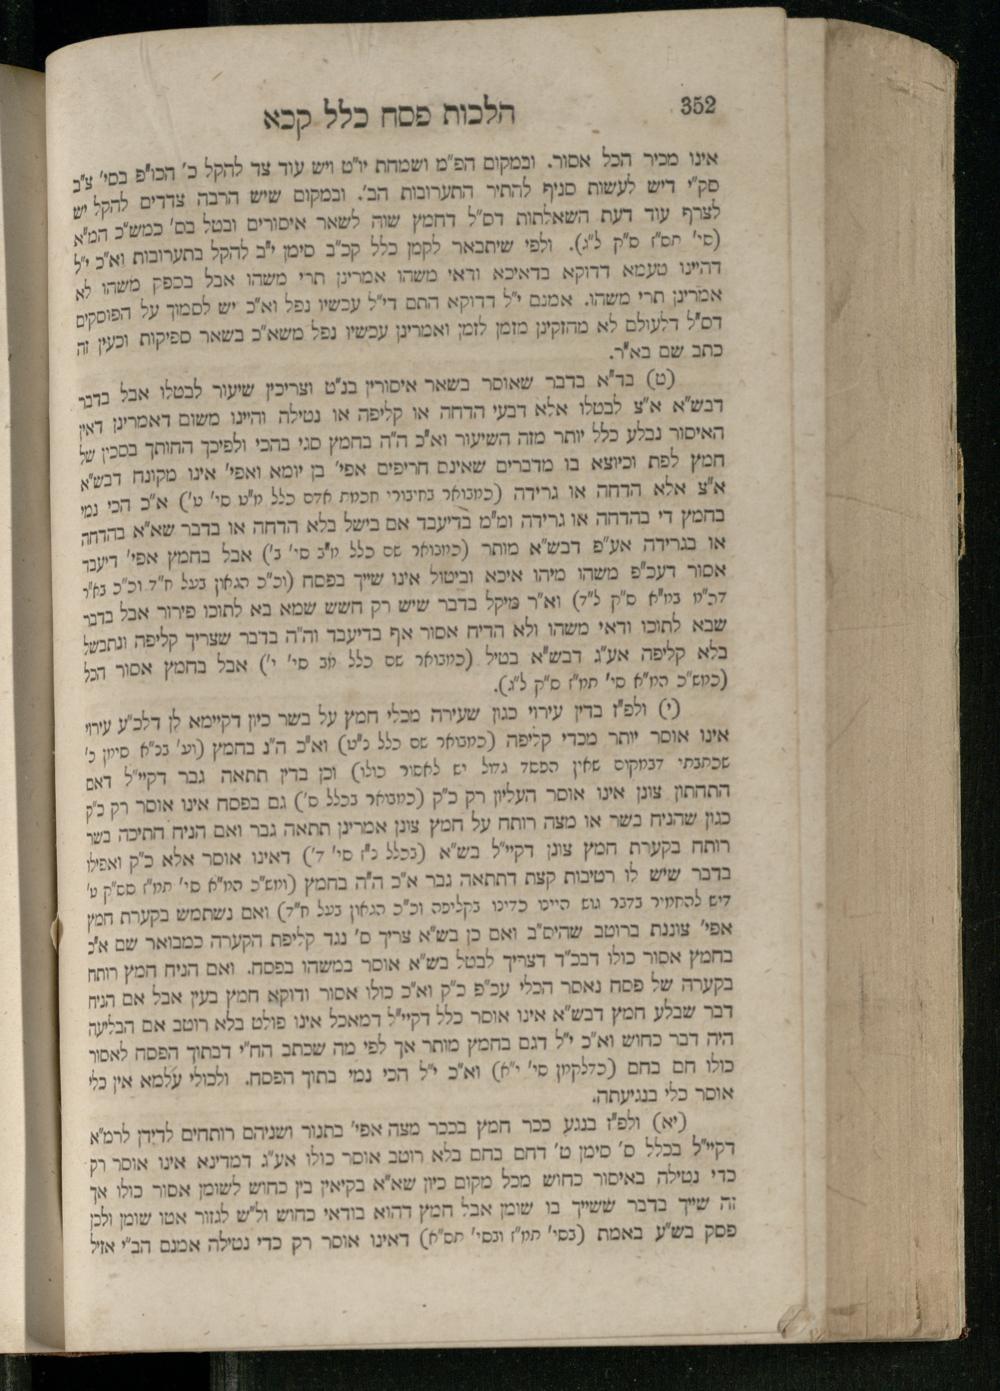 352
הלכות פסח כלל קכא
אינו מכיר הכל אסור. ובמקום הפ"מ ושמחת יו"ט ויש עוד צד להקל כ' הכו"פ בסי' צ"ב
סק"י דיש לעשות סניף להתיר התערובות הב'. ובמקום שיש הרבה צדדים להקל יש
לצרף עוד דעת השאלתות דס"ל דחמץ שוה לשאר איסורים ובטל בס' כמש"כ המ"א
(סי' תס"ז ס"ק ל"ג). ולפי שיתבאר לקמן כלל קכ"ב סימן י"ב להקל בתערובות וא"כ י"ל
דהיינו טעמא דדוקא בדאיכא ודאי משהו אמרינן תרי משהו אבל בספק משהו לא
אמרינן תרי משהו. אמנם י"ל דדוקא התם די"ל עכשיו נפל וא"כ יש לסמוך על הפוסקים
דס"ל דלעולם לא מחזקינן מזמן לזמן ואמרינן עכשיו נפל משא"כ בשאר ספיקות וכעין זה
כתב שם בא"ר.
(ט) בד"א בדבר שאוסר בשאר איסורין בנ"ט וצריכין שיעור לבטלו אבל בדבר
דבש"א א"צ לבטלו אלא דבעי הדחה או קליפה או נטילה והיינו משום דאמרינן דאין
האיסור נבלע כלל יותר מזה השיעור וא"כ ה"ה בחמץ סגי בהכי ולפיכך החותך בסכין של
חמץ לפת וכיוצא בו מדברים שאינם חריפים אפי' בן יומא ואפי' אינו מקונח דבש"א
א"צ אלא הדחה או גרידה (כמבואר בחיבורי חכמת אדם כלל מ"ט סי' ט') א"כ הכי נמי
בחמץ די בהדחה או גרידה ומ"מ בדיעבד אם בישל בלא הדחה או בדבר שא"א בהדחה
או בגרידה אע"פ דבש"א מותר (כמבואר שם כלל מ"ב סי' ב') אבל בחמץ אפי' דיעבד
אסור דעכ"פ משהו מיהו איכא וביטול אינו שייך בפסח (וכ"כ הגאון בעל ח"ד וכ"כ בא"ר
דכ"מ במ"א ס"ק ל"ד) וא"ר מיקל בדבר שיש רק חשש שמא בא לתוכו פירור אבל בדבר
שבא לתוכו ודאי משהו ולא הדיח אסור אף בדיעבד וה"ה בדבר שצריך קליפה ונתבשל
בלא קליפה אע"ג דבש"א בטיל (כמבואר שם כלל מב סי' י') אבל בחמץ אסור הכל
(כמש"כ המ"א סי' תמ"ז ס"ק ל"ג).
(י) ולפ"ז בדין עירוי כגון שעירה מכלי חמץ על בשר כיון דקיימא לן דלכ"ע עירוי
אינו אוסר יותר מכדי קליפה (כמבואר שם כלל נ"ט) וא"כ ה"נ בחמץ (וע' בב"א סימן כ'
שכתבתי דבמקום שאין הפסד גדול יש לאסור כולו) וכן בדין תתאה גבר דקיי"ל דאם
התחתון צונן אינו אוסר העליון רק כ"ק (כמבואר בכלל ס') גם בפסח אינו אוסר רק כ"ק
כגון שהניח בשר או מצה רותח על חמץ צונן אמרינן תתאה גבר ואם הניח חתיכה בשר
רותח בקערת חמץ צונן דקיי"ל בש"א (בכלל נ"ז סי' ד') דאינו אוסר אלא כ"ק ואפילו
בדבר שיש לו רטיבות קצת דתתאה גבר א"כ ה"ה בחמץ (ומש"כ המ"א סי' תמ"ז סס"ק ט'
דיש להחמיר בדבר גוש היינו כדינו בקליפה וכ"כ הגאון בעל ח"ד) ואם נשתמש בקערת חמץ
אפי' צוננת ברוטב שהיס"ב ואם כן בש"א צריך ס' נגד קליפת הקערה כמבואר שם א"כ
בחמץ אסור כולו דבכ"ד דצריך לבטל בש"א אוסר במשהו בפסח. ואם הניח חמץ רותח
בקערה של פסח נאסר הכלי עכ"פ כ"ק וא"כ כולו אסור ודוקא חמץ בעין אבל אם הניח
דבר שבלע חמץ דבש"א אינו אוסר כלל דקיי"ל דמאכל אינו פולט בלא רוטב אם הבליעה
היה דבר כחוש וא"כ י"ל דגם בחמץ מותר אך לפי מה שכתב הח"י דבתוך הפסח לאסור
כולו חם בחם (כדלקמן סי' י"א) וא"כ י"ל הכי נמי בתוך הפסח. ולכולי עלמא אין כלי
אוסר כלי בנגיעתה.
(יא) ולפ"ז בנגע ככר חמץ בככר מצה אפי' בתנור ושניהם רותחים לדידן לרמ"א
דקיי"ל בכלל ס' סימן ט' דחם בחם בלא רוטב אוסר כולו אע"ג דמדינא אינו אוסר רק
כדי נטילה באיסור כחוש מכל מקום כיון שא"א בקיאין בין כחוש לשומן אסור כולו אך
זה שייך בדבר ששייך בו שומן אבל חמץ דהוא בודאי כחוש ול"ש לגזור אטו שומן ולכן
פסק בש"ע באמת (בסי' תמ"ז ובסי' תס"א) דאינו אוסר רק כדי נטילה אמנם הב"י אזיל